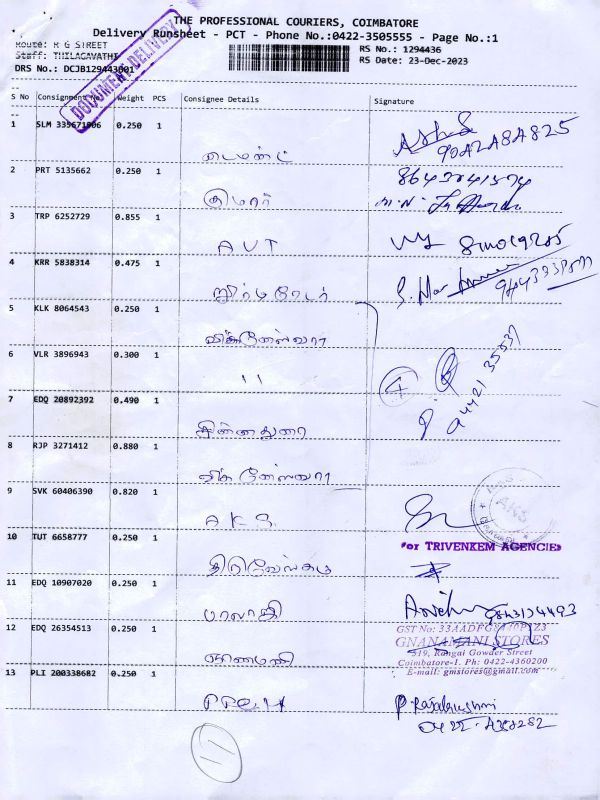 THE PROFESSIONAL COURIERS, COIMBATORE
Delivery Runsheet - PCT - Phone No.:0422-3505555 - Page No.:1
Route: R G STREET
RS No.: 1294436
Staff: THILAGAVATHI
RS Date: 23-Dec-2023
DRS No.: DCJB129443601
DOCUMENT DELIVERY
S No Consignment No Weight PCS Consignee Details Signature
1 SLM 335671906 0.250 1
டைமண்ட்
2 PRT 5135662 0.250 1
குமார்
3 TRP 6252729 0.855 1
AVT
4 KRR 5838314 0.475 1
5 KLK 8064543 0.250 1
விக்னேஸ்வரா
6 VLR 3896943 0.300 1
"
4
7 EDQ 20892392 0.490 1
சின்னதுரை
8 RJP 3271412 0.880 1
விக்னேஸ்வரா
9 SVK 60406390 0.820 1
AKS
ANS
For TRIVENKEM AGENCIES
10 TUT 6658777 0.250 1
11 EDQ 10907020 0.250 1
பாலாஜி
12 EDQ 26354513 0.250 1
GNANAMANI STORES
519, Rangai Gowder Street
Coimbatore-1. Ph: 0422-4360200
E-mail: gmstores@gmail.com
ஞானமணி
13 PLI 200338682 0.250 1
P. Rajalakshmi
11